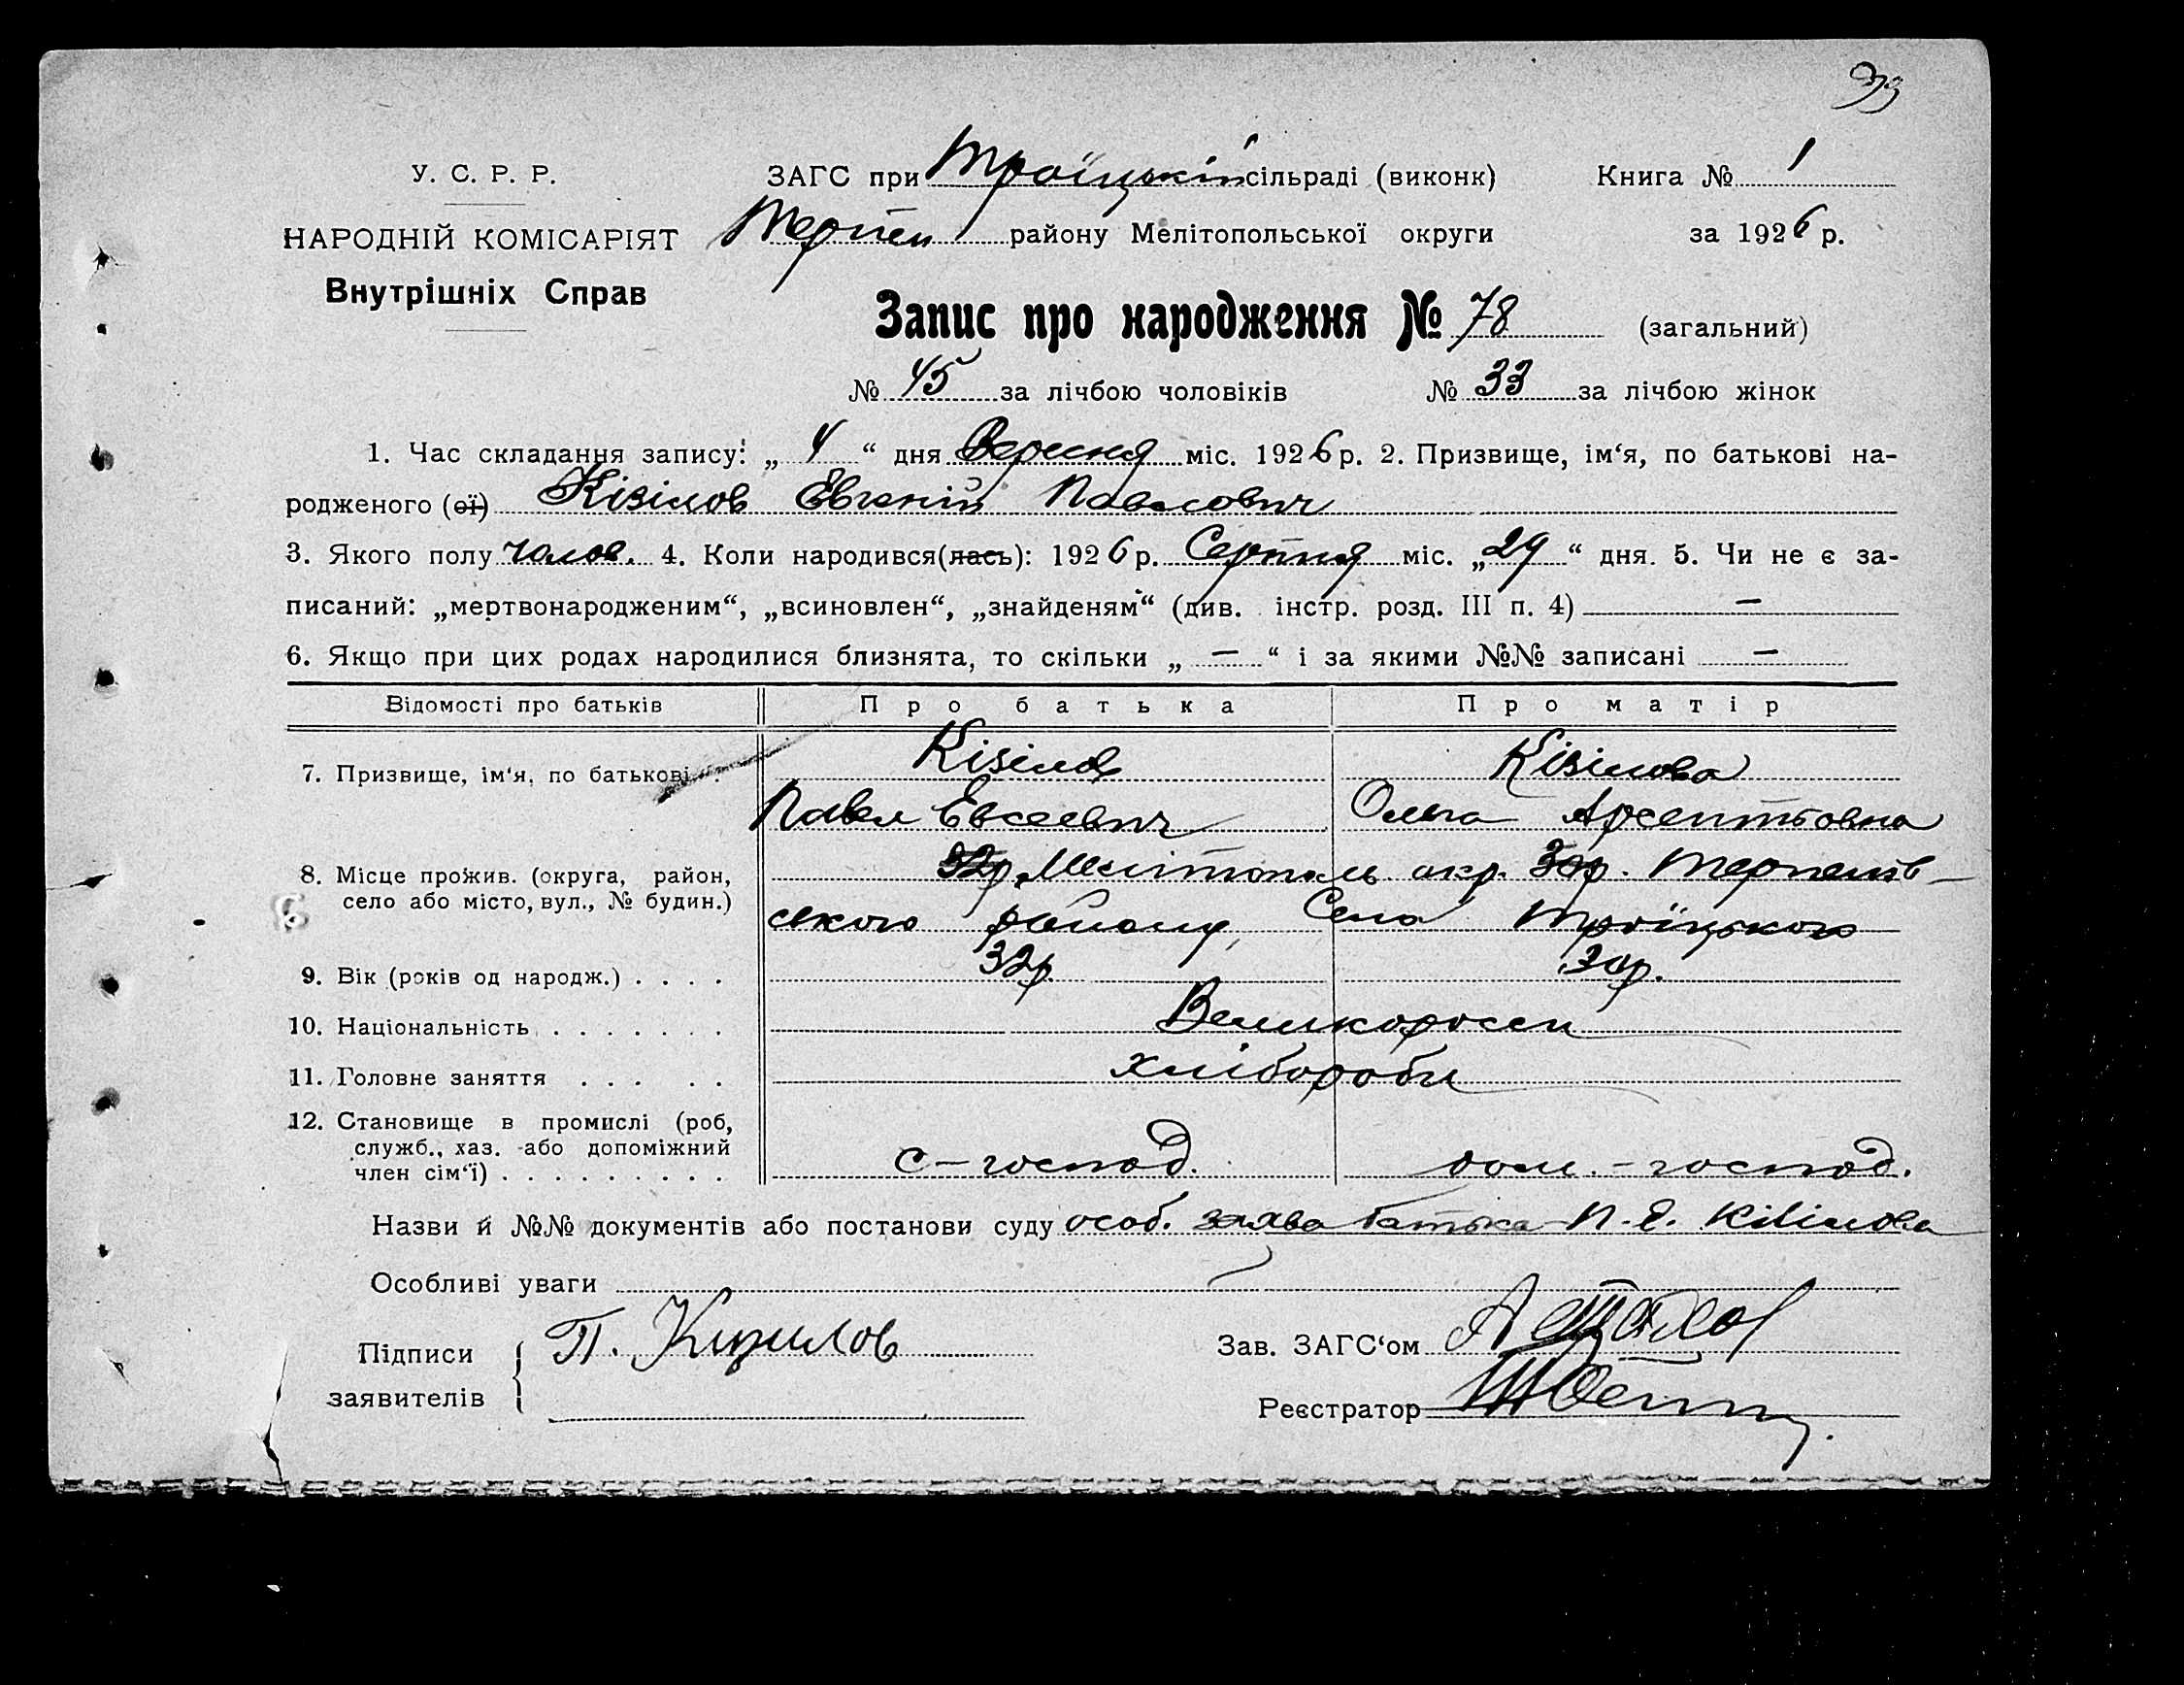 33
У. С. Р. Р.
ЗАГС при Троїцькій сільраді (виконк) Книга № 1
НАРОДНІЙ КОМІСАРІЯТ
Терпен району Мелітопольської округи за 1926 р.
Внутрішніх Справ
Запис про народження № 78 (загальний)
№ 45 за лічбою чоловіків № 33 за лічбою жінок
1. Час складання запису: „ 4 “ дня Вересня міс. 1926 р. 2. Призвище, ім‘я, по батькові на-
родженого (ої) Кізілов Евгеній Павлович
3. Якого полу чолов. 4. Коли народився(лась): 1926 р. Серпня міс. „ 29 “ дня. 5. Чи не є за-
писаний: „мертвонародженим“, „всиновлен“, „знайденям“ (див. інстр. розд. III п. 4) —
6. Якщо при цих родах народилися близнята, то скільки „ — “ і за якими №№ записані —
Відомості про батьків Про батька Про матір
7. Призвище, ім‘я, по батькові . Кізілов Кізілова
Павел Евсеевич Ольга Арсентьовна
8. Місце прожив. (округа, район, 32р. Мелітополь окр. 30р. Терпенів-
село або місто, вул., № будин.) ського району, Села Троїцького
9. Вік (років од народж.) . . . . 32р. 30р.
10. Національність . . . . . . . Великороси
11. Головне заняття . . . . . хлібороби
12. Становище в промислі (роб,
служб., хаз. або допоміжний
член сім‘ї) . . . . . . . . . с-господ. дом.-господ.
Назви й №№ документів або постанови суду особ. заява батька П. Е. Кізілова
Особливі уваги
Підписи П. Кизилов Зав. ЗАГС‘ом
заявителів Реєстратор